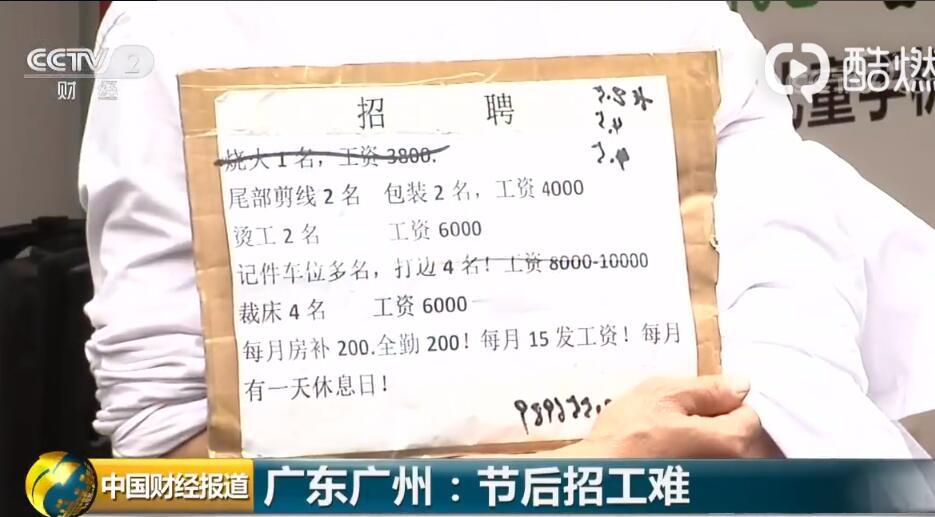 CCTV 2
财经
酷燃
童
招 聘
烧火1名，工资 3800.
尾部剪线 2 名 包装 2 名，工资 4000
烫工 2 名 工资 6000
记件车位多名，打边 4 名！工资 8000-10000
裁床 4 名 工资 6000
每月房补 200.全勤 200！每月 15 发工资！每月
有一天休息日！
中国财经报道
广东广州：节后招工难